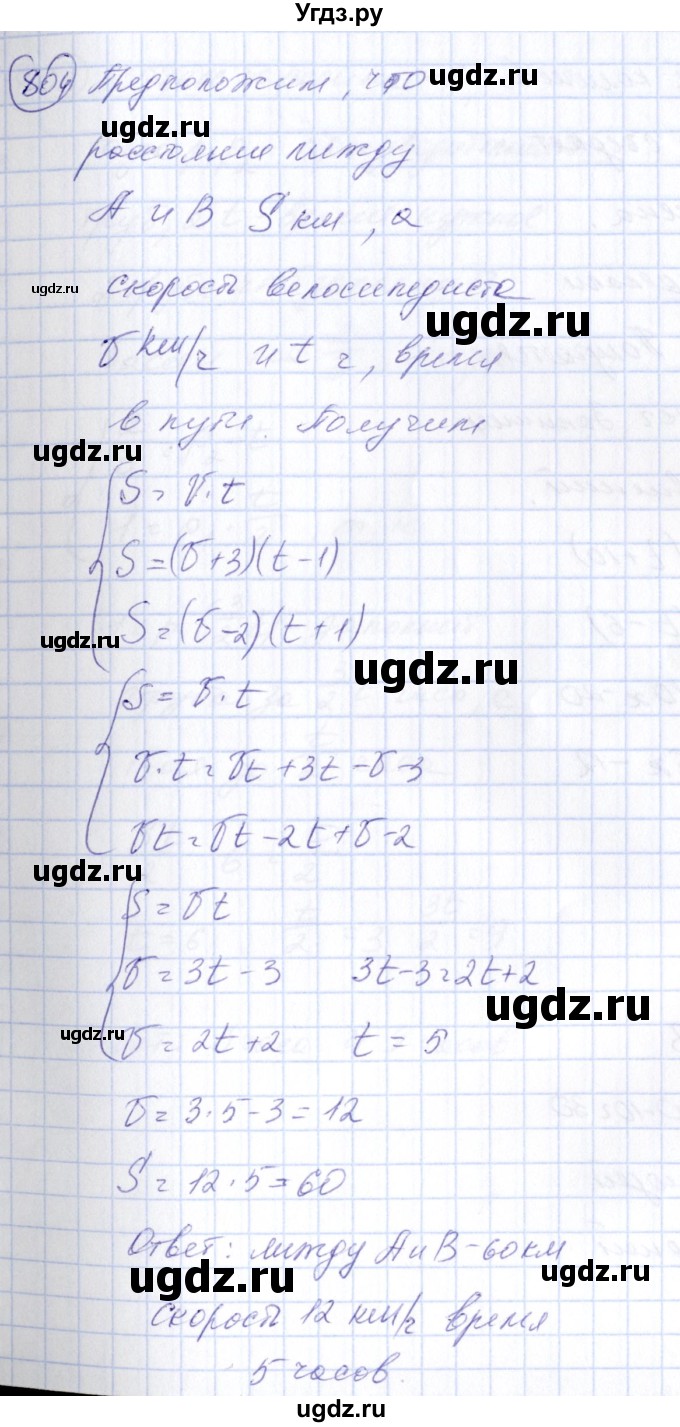 Угдз.ру
804 Предположим, что
ugdz.ru
расстояние между
А и В S км, а
ugdz.ru
скорость велосипедиста
ugdz.ru
v км/ч и t ч, время
в пути. Получим
ugdz.ru
S = v · t
S = (v+3)(t-1)
S = (v-2)(t+1)
ugdz.ru
ugdz.ru
S = v · t
v · t = vt + 3t - v - 3
vt = vt - 2t + v - 2
ugdz.ru
S = vt
v = 3t - 3 3t - 3 = 2t + 2
ugdz.ru
ugdz.ru
v = 2t + 2 t = 5
v = 3 · 5 - 3 = 12
S = 12 · 5 = 60
Ответ: между А и В - 60 км
ugdz.ru
ugdz.ru
скорость 12 км/ч время
5 часов.
ugdz.ru